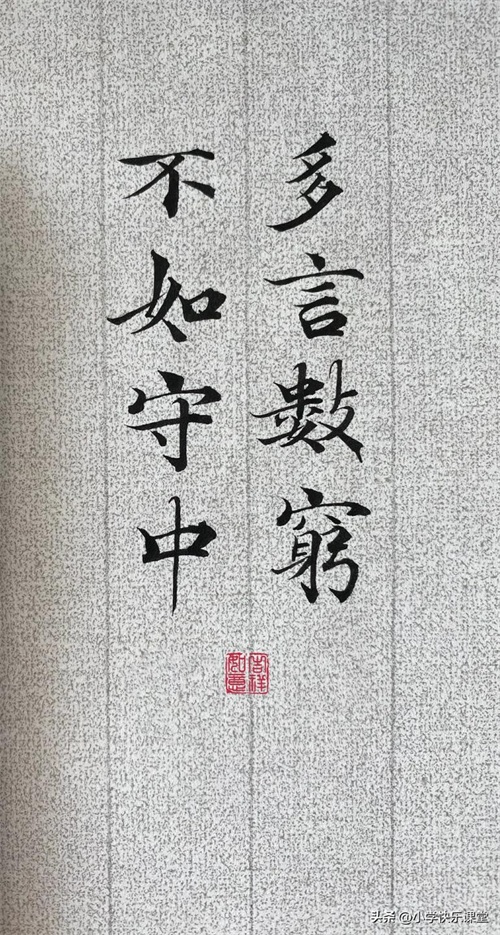 多言數窮
不如守中
吉祥
如意
头条 @小学快乐课堂